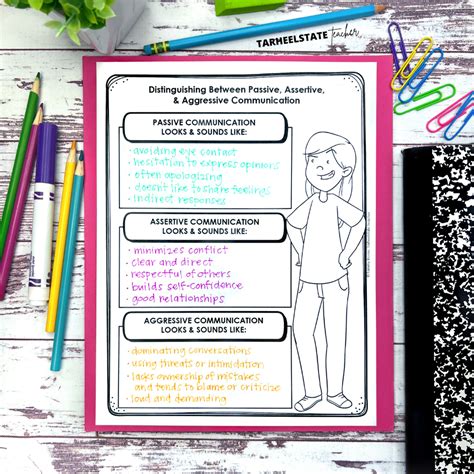 TARHEELSTATE teacher
Distinguishing Between Passive, Assertive,
& Aggressive Communication
PASSIVE COMMUNICATION
LOOKS & SOUNDS LIKE:
• avoiding eye contact
• hesitation to express opinions
• often apologizing
• doesn't like to share feelings
• indirect responses
ASSERTIVE COMMUNICATION
LOOKS & SOUNDS LIKE:
• minimizes conflict
• clear and direct
• respectful of others
• builds self-confidence
• good relationships
AGGRESSIVE COMMUNICATION
LOOKS & SOUNDS LIKE:
• dominating conversations
• using threats or intimidation
• lacks ownership of mistakes
and tends to blame or criticize
• loud and demanding